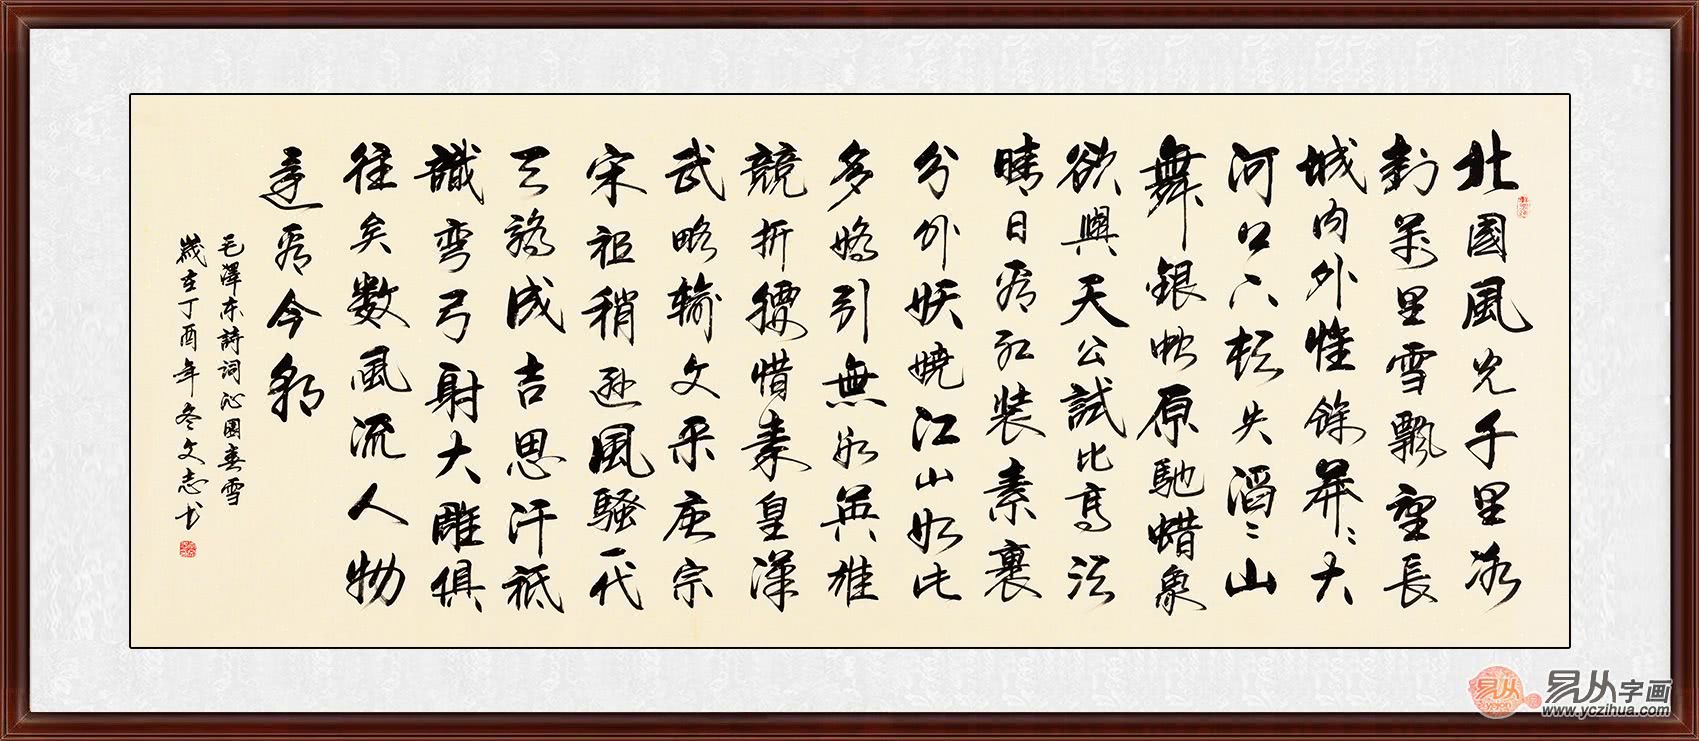 北國風光千里冰
封萬里雪飄望長
城內外惟餘莽〻大
河上下頓失滔〻山
舞銀蛇原馳蜡象
欲與天公試比高須
晴日看紅裝素裹
分外妖嬈江山如此
多嬌引無數英雄
競折腰惜秦皇漢
武略輸文采唐宗
宋祖稍遜風騷一代
天驕成吉思汗祗
識彎弓射大雕俱
往矣數風流人物
還看今朝
毛澤東詩詞沁園春雪
歲在丁酉年冬文志书
易从
易从字画
www.yczihua.com